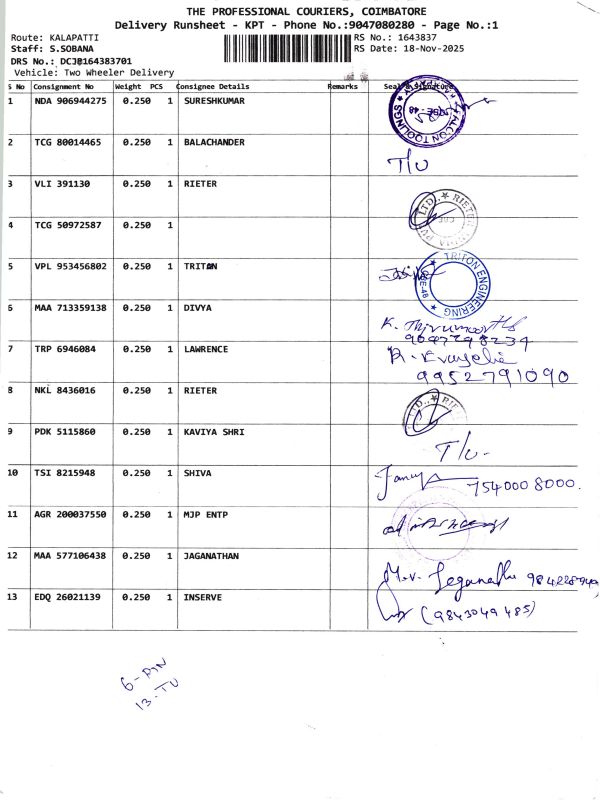 THE PROFESSIONAL COURIERS, COIMBATORE
Delivery Runsheet - KPT - Phone No.:9047080280 - Page No.:1
Route: KALAPATTI RS No.: 1643837
Staff: S.SOBANA RS Date: 18-Nov-2025
DRS No.: DCJ0164383701
Vehicle: Two Wheeler Delivery
S No Consignment No Weight PCS Consignee Details Remarks Seal & Signature
1 NDA 906944275 0.250 1 SURESHKUMAR
2 TCG 80014465 0.250 1 BALACHANDER T/U
3 VLI 391130 0.250 1 RIETER
4 TCG 50972587 0.250 1
5 VPL 953456802 0.250 1 TRITON TRITON ENGINEERING
6 MAA 713359138 0.250 1 DIVYA
7 TRP 6946084 0.250 1 LAWRENCE
9952791090
8 NKL 8436016 0.250 1 RIETER
9 PDK 5115860 0.250 1 KAVIYA SHRI T/U-
10 TSI 8215948 0.250 1 SHIVA 7540008000.
11 AGR 200037550 0.250 1 MJP ENTP
12 MAA 577106438 0.250 1 JAGANATHAN
13 EDQ 26021139 0.250 1 INSERVE (9843049485)
13-TU